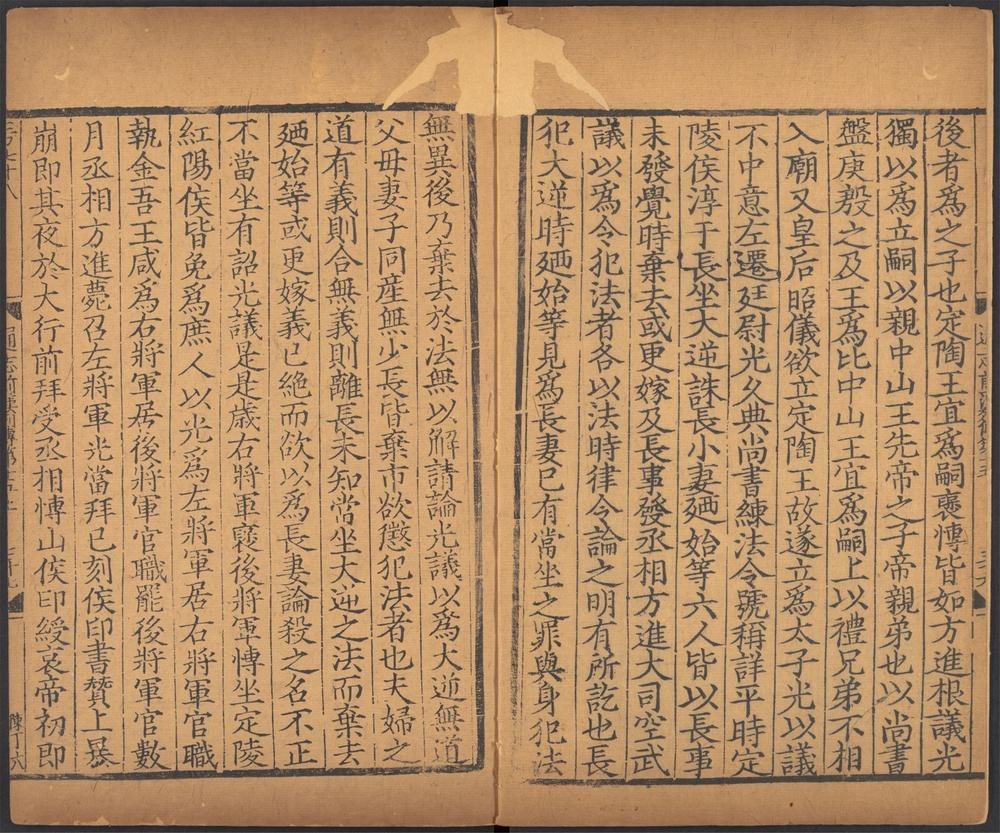 後者爲之子也定陶王宜爲嗣襃慱皆如方進根議光
獨以爲立嗣以親中山王先帝之子帝親弟也以尚書
盤庚殷之及王爲比中山王宜爲嗣上以禮兄弟不相
入廟又皇后昭儀欲立定陶王故遂立爲太子光以議
不中意左遷廷尉光久典尚書練法令號稱詳平時定
陵侯淳于長坐大逆誅長小妻廼始等六人皆以長事
未發覺時棄去或更嫁及長事發丞相方進大司空武
議以爲令犯法者各以法時律令論之明有所訖也長
犯大逆時廼始等見爲長妻已有當坐之罪與身犯法
無異後乃棄去於法無以解請論光議以爲大逆無道
父母妻子同産無少長皆棄市欲懲犯法者也夫婦之
道有義則合無義則離長未知當坐大逆之法而棄去
廼始等或更嫁義已絶而欲以爲長妻論殺之名不正
不當坐有詔光議是是歳右將軍襃後將軍慱坐定陵
紅陽侯皆免爲庶人以光爲左將軍居右將軍官職
執金吾王咸爲右將軍居後將軍官職罷後將軍官數
月丞相方進薨召左將軍光當拜已刻侯印書贊上暴
崩即其夜於大行前拜受丞相慱山侯印綬哀帝初即